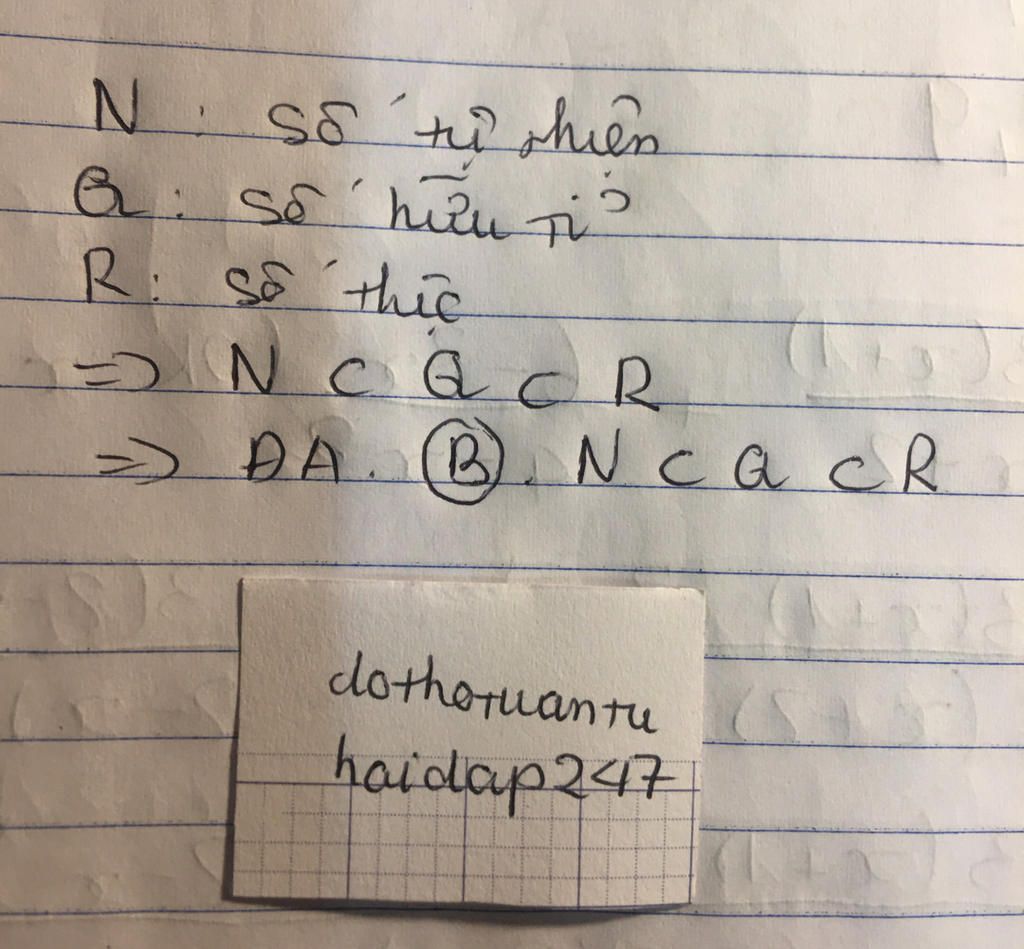 N : số tự nhiên
Q : số hữu tỉ
R : số thực
=> N ⊂ Q ⊂ R
=> ĐA. B. N ⊂ Q ⊂ R
dothotuantu
haidap247